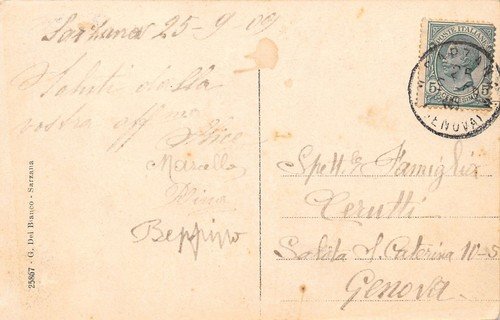 Sarzana 25-9 09
Saluti dalla
vostra aff.ma
Alice
Marcello
Beppino
25867 - G. Del Bianco - Sarzana
POSTE ITALIANE
5 5
GENOVA
Spett.le Famiglia
Cerutti
Salita S. Caterina 10-5
Genova